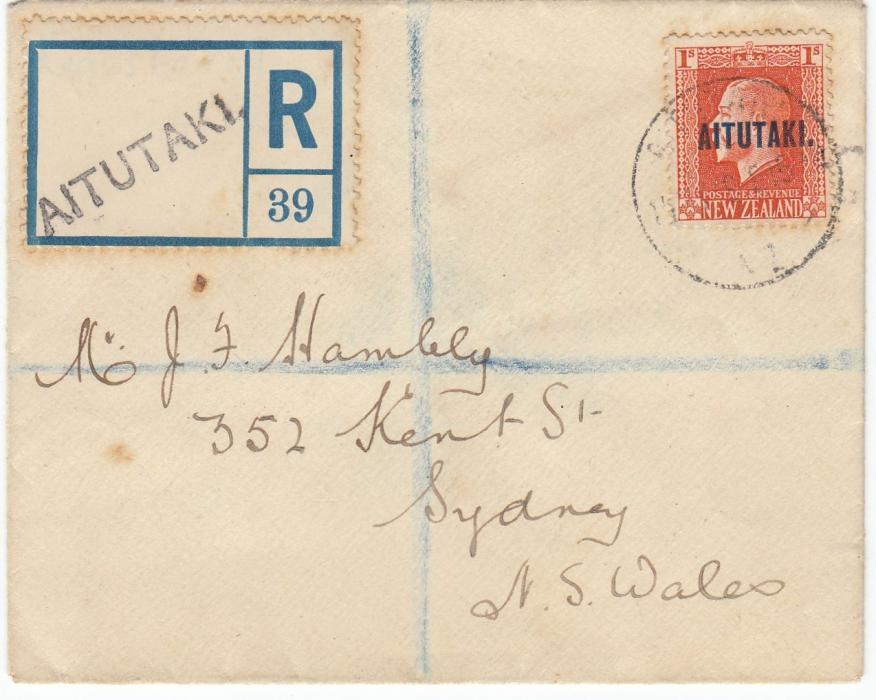 R
AITUTAKI.
39
1s 1s
AITUTAKI.
POSTAGE & REVENUE
NEW ZEALAND
Mr J. F. Hambly
352 Kent St
Sydney
N. S. Wales